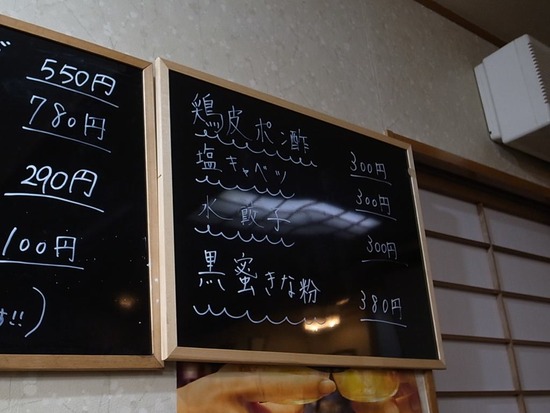 ど
550円
780円
290円
100円
す!!)
鶏皮ポン酢 300円
塩キャベツ 300円
水餃子 300円
黒蜜きな粉 380円